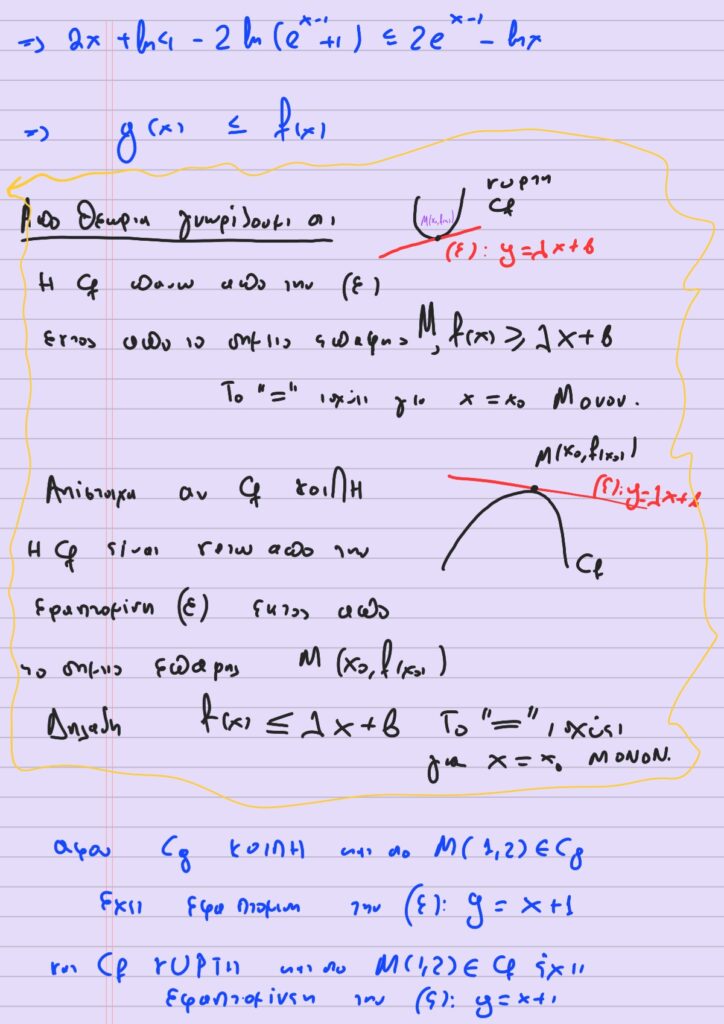 => 2x + ln4 - 2 ln(e^{x-1}+1) ≤ 2e^{x-1} - lnx
=> g(x) ≤ f(x)
Από Θεωρια γνωρίζουμε οτι
κυρτη
Cf
M(x₀,f(x₀))
(ε): y=λx+β
Η Cf πανω από την (ε)
εκτος από το σημειο επαφης M, f(x) ≥ λx+β
Το "=" ισχύει για x = x₀ Μονον.
M(x₀,f(x₀))
Αντίστοιχα αν Cf κοιλη
(ε): y=λx+β
Η Cf είναι κατω από την
Cf
Εφαπτομένη (ε) εκτος από
το σημειο επαφης M(x₀,f(x₀))
Δηλαδη f(x) ≤ λx+β Το "=" ισχύει
για x = x₀ ΜΟΝΟΝ.
αφου Cg κοιλη και στο M(1,2) ∈ Cg
Εχει εφαπτομενη την (ε): y = x+1
και Cf κυρτη και στο M(1,2) ∈ Cf έχει
Εφαπτομένη την (ε): y=x+1